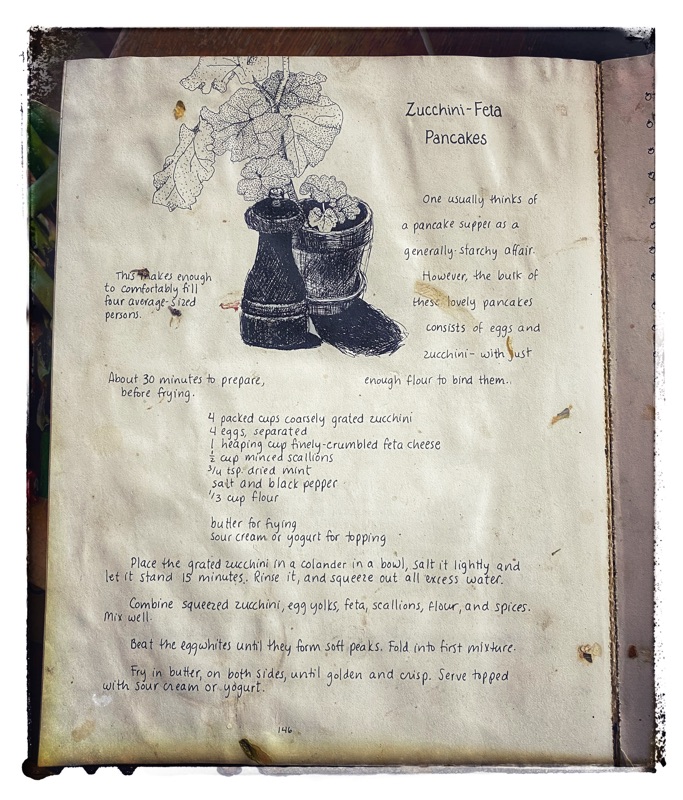 Zucchini-Feta
Pancakes
One usually thinks of
a pancake supper as a
generally-starchy affair.
However, the bulk of
these lovely pancakes
consists of eggs and
zucchini- with just
enough flour to bind them..
This makes enough
to comfortably fill
four average-sized
persons.
About 30 minutes to prepare,
before frying.
4 packed cups coarsely grated zucchini
4 eggs, separated
1 heaping cup finely-crumbled feta cheese
½ cup minced scallions
3/4 tsp. dried mint
salt and black pepper
1/3 cup flour
butter for frying
sour cream or yogurt for topping
Place the grated zucchini in a colander in a bowl, salt it lightly and
let it stand 15 minutes. Rinse it, and squeeze out all excess water.
Combine squeezed zucchini, egg yolks, feta, scallions, flour, and spices.
Mix well.
Beat the eggwhites until they form soft peaks. Fold into first mixture.
Fry in butter, on both sides, until golden and crisp. Serve topped
with sour cream or yogurt.
146